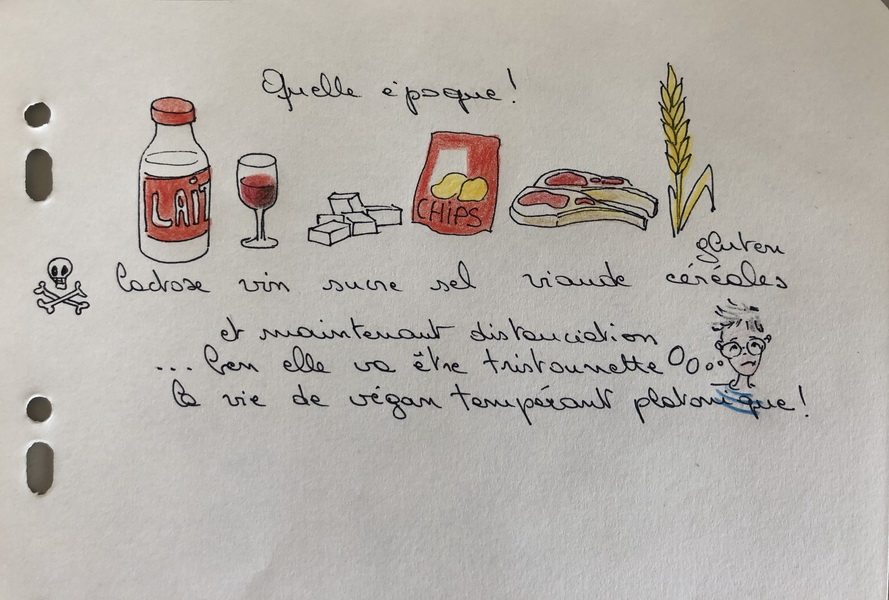 Quelle époque !
LAIT
CHIPS
gluten
lactose vin sucre sel viande céréales
et maintenant distanciation
... ben elle va être tristounette
la vie de végan tempérant platonique !